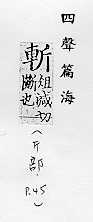 四聲篇海
斬
俎減切
斷也
(斤部
P.45)